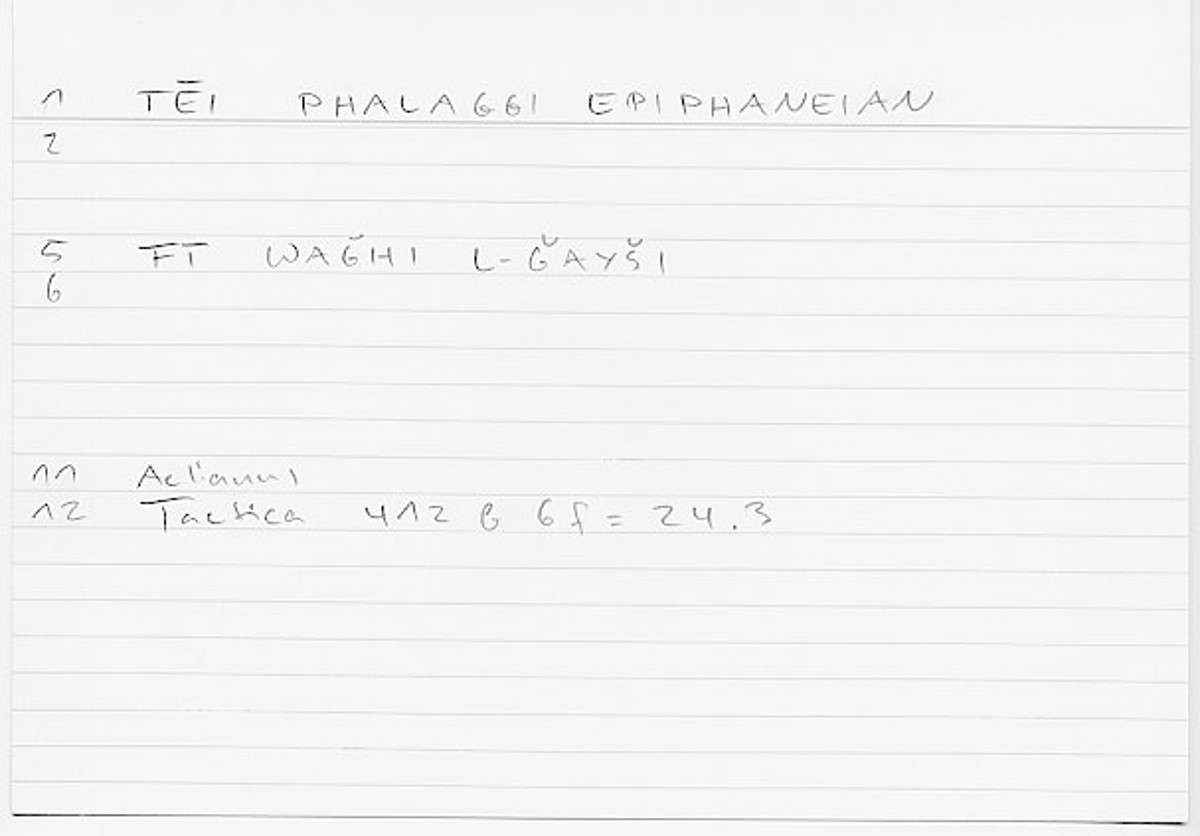 1 TĒI PHALAGGI EPIPHANEIAN
2
5 FĪ WAǦHI L-ǦAYŠI
6
11 Aelianus
12 Tactica 412 B 6 f = 24.3